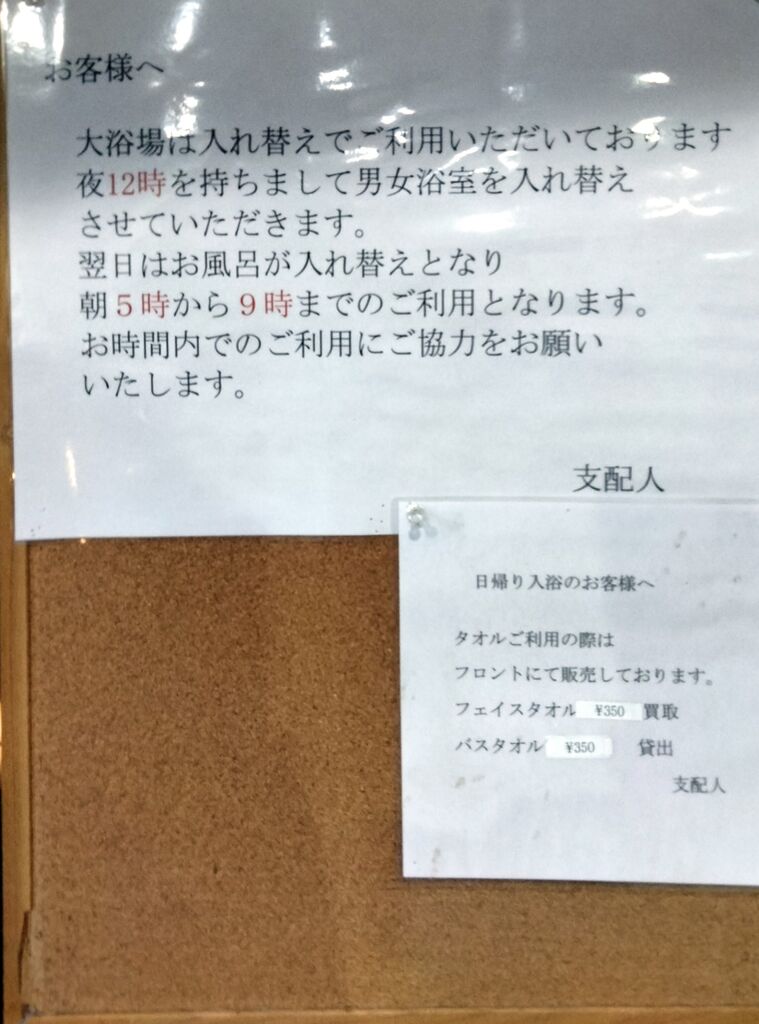 お客様へ
大浴場は入れ替えでご利用いただいております
夜12時を持ちまして男女浴室を入れ替え
させていただきます。
翌日はお風呂が入れ替えとなり
朝５時から９時までのご利用となります。
お時間内でのご利用にご協力をお願い
いたします。
支配人
日帰り入浴のお客様へ
タオルご利用の際は
フロントにて販売しております。
フェイスタオル ¥350 買取
バスタオル ¥350 貸出
支配人